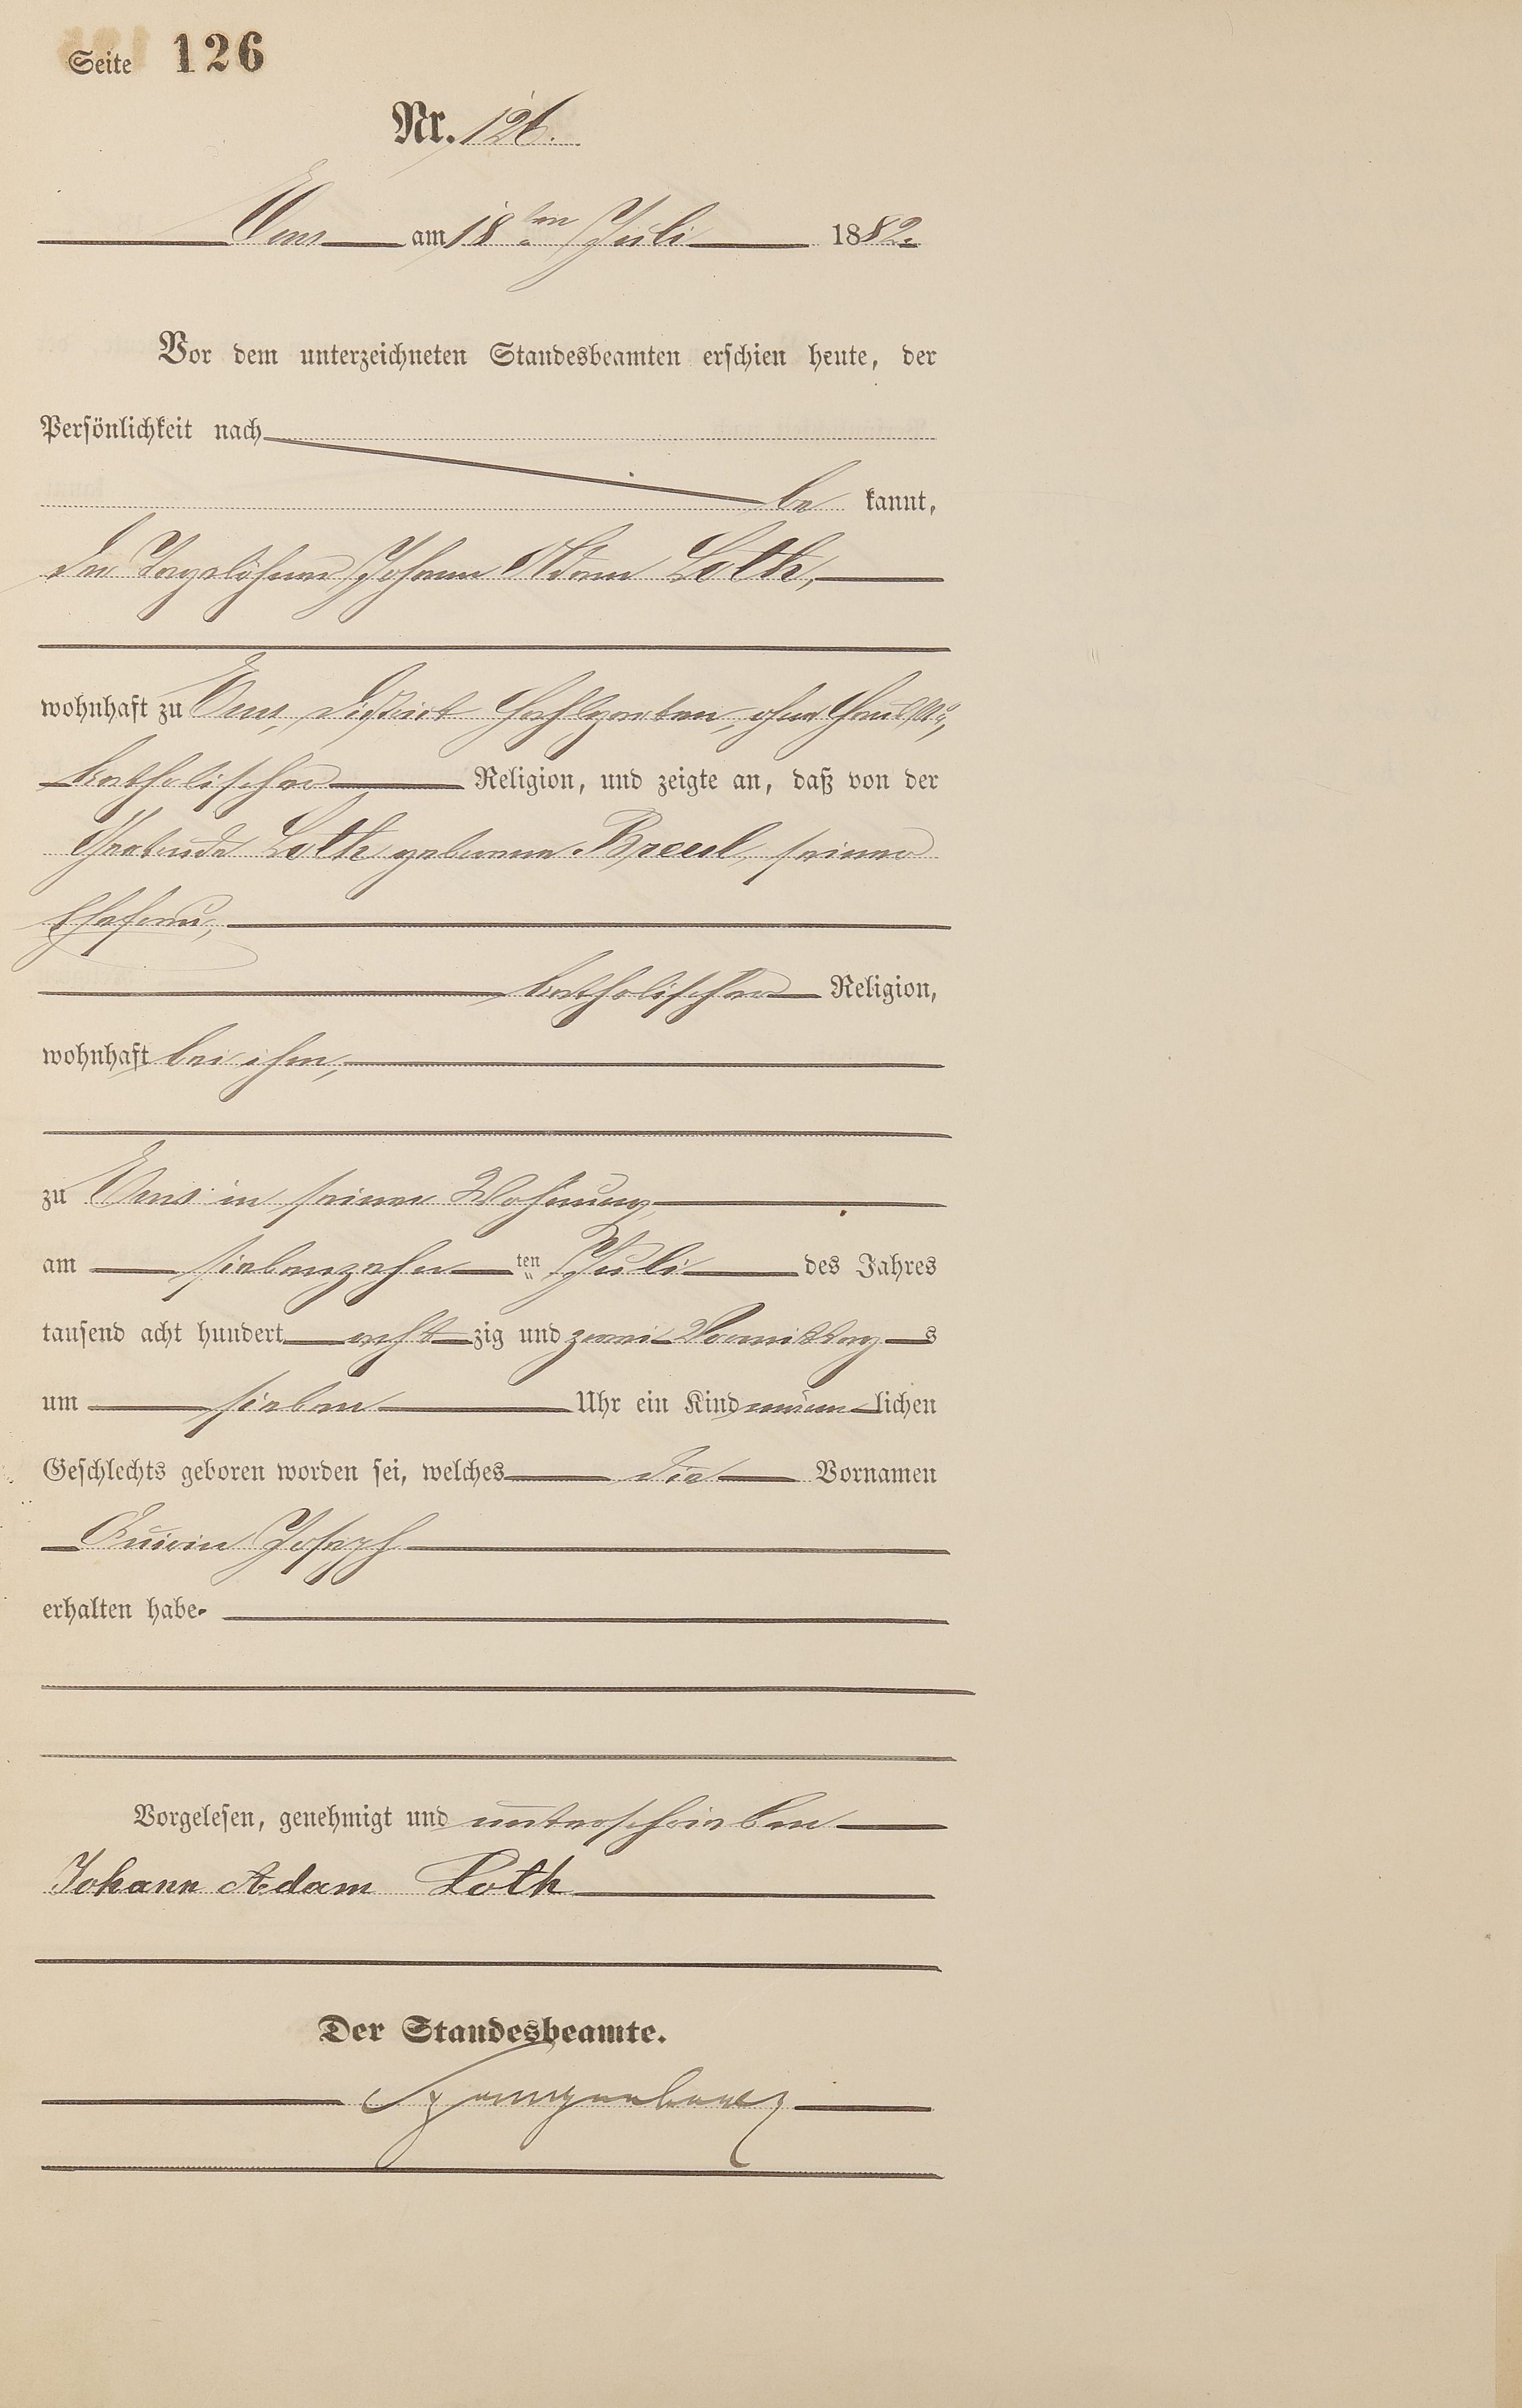 Seite 126
Nr. 126.
Ems am 18ten Juli 1882.
Vor dem unterzeichneten Standesbeamten erschien heute, der
Persönlichkeit nach
be kannt,
der Tagelöhner Johann Adam Loth,
wohnhaft zu Ems, District ohne Haus No,
katholischer Religion, und zeigte an, daß von der
Gertrude Loth geborene Breul, seiner
Ehefrau,
katholischer Religion,
wohnhaft bei ihm,
zu Ems in seiner Wohnung,
am siebenzehn ten Juli des Jahres
tausend acht hundert acht zig und zwei Vormittag s
um sieben Uhr ein Kind männ lichen
Geschlechts geboren worden sei, welches die Vornamen
Joseph
erhalten habe.
Vorgelesen, genehmigt und unterschrieben
Johann Adam Loth
Der Standesbeamte.